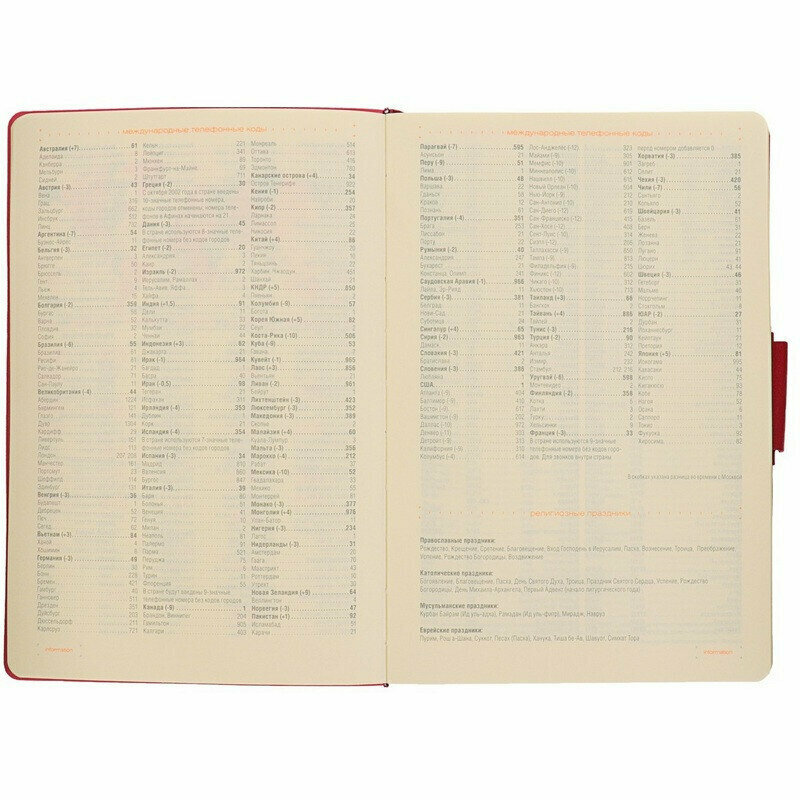 международные телефонные коды
Австралия (+7) 61
Аделаида 8
Канберра
Мельбурн
Сидней
Австрия (-3) 43
Вена 1
Грац 316
Зальцбург 662
Инсбрук 512
Линц 732
Аргентина (-7) 54
Буэнос-Айрес 11
Бельгия (-3)
Антверпен 3
Брюгге 50
Брюссель 2
Гент 9
Льеж 4
Болгария (-2) 359
Бургас 56
Варна 52
Пловдив 32
София
Бразилия (-6) 55
Бразилиа 61
Ресифи
Рио-де-Жанейро 21
Сальвадор
Сан-Паулу 11
Великобритания (-4) 44
Абердин 1224
Бирмингем 121
Глазго 141
Дувр 1304
Кардифф
Ливерпуль 151
Лидс
Лондон 207 208
Манчестер 161
Портсмут
Шеффилд 114
Эдинбург 131
Венгрия (-3) 36
Будапешт 1
Дебрецен 52
Печ 72
Сегед 62
Вьетнам (+3) 84
Ханой 4
Хошимин 8
Германия (-3) 49
Берлин 30
Бонн 228
Бремен 421
Гамбург 40
Ганновер 511
Дрезден 351
Дуйсбург 203
Дюссельдорф 211
Карлсруэ 721
Кельн 221
Лейпциг 341
Мюнхен 89
Франкфурт-на-Майне 69
Штутгарт 711
Греция (-2) 30
С октября 2002 года в стране введены
10-значные телефонные номера,
коды городов отменены, номера теле-
фонов в Афинах начинаются на 21
Дания (-3) 45
В стране используются 8-значные теле-
фонные номера без кодов городов
Египет (-2) 20
Александрия 3
Каир 2
Израиль (-2) 972
Иерусалим, Рамаллах 2
Тель-Авив, Яффа 3
Хайфа 4
Индия (+1,5) 91
Дели 11
Калькутта 33
Мумбаи 22
Ченнаи 44
Индонезия (+3) 62
Джакарта 21
Ирак (-1) 964
Багдад 1
Басра 40
Иран (-0,5) 98
Тегеран 21
Исфахан 311
Ирландия (-4) 353
Дублин 1
Корк 21
Исландия (-4) 354
В стране используются 7-значные теле-
фонные номера без кодов городов
Испания (-3) 34
Мадрид 910
Валенсия 960
Бургос 947
Италия (-3) 39
Бари 80
Болонья 51
Венеция 41
Генуя 10
Милан 2
Неаполь 81
Палермо 91
Парма 521
Перуджа 75
Рим 6
Турин 11
Флоренция 55
В стране будут введены 9-значные
телефонные номера без кодов городов
Канада (-9) 1
Брандон, Виннипег 204
Гамильтон 905
Калгари 403
Монреаль 514
Оттава 613
Торонто 416
Эдмонтон 780
Канарские острова (+4) 34
Остров Тенерифе 922
Кения (-1) 254
Найроби 20
Кипр (-2) 357
Ларнака 24
Лимассол 25
Никосия 22
Китай (+4) 86
Гуанчжоу 20
Пекин 10
Тяньцзинь 22
Харбин
Шанхай
КНДР (+5) 850
Пхеньян 2
Колумбия (-9) 57
Богота 1
Корея Южная (+5) 82
Сеул 2
Коста-Рика (-10) 506
Куба (-9) 53
Гавана 7
Кувейт (-1) 965
Лаос (+3) 856
Вьентьян 21
Ливан (-2) 961
Бейрут 1
Лихтенштейн (-3) 423
Люксембург (-3) 352
Македония (-3) 389
Скопье
Малайзия (+4) 60
Куала-Лумпур 3
Мальта (-3) 356
Марокко (-4) 212
Рабат 37
Мексика (-10) 52
Гвадалахара 33
Мехико 55
Монтеррей 81
Монако (-3) 377
Монголия (+4) 976
Улан-Батор 11
Нигерия (-3) 234
Лагос 1
Нидерланды (-3) 31
Амстердам 20
Гаага 70
Маастрихт 43
Роттердам 10
Утрехт 30
Новая Зеландия (+9) 64
Веллингтон 4
Норвегия (-3) 47
Пакистан (+1) 92
Исламабад 51
Карачи 21
information
международные телефонные коды
Парагвай (-7) 595
Асунсьон 21
Перу (-9) 51
Лима 1
Польша (-3) 48
Варшава 22
Гданьск 58
Краков 12
Познань 61
Португалия (-4) 351
Брага
Лиссабон 21
Порту 22
Румыния (-2) 40
Александрия 247
Бухарест 21
Констанца, Олимп 241
Саудовская Аравия (-1) 966
Лайла, Эр-Рияд 11
Сербия (-3) 381
Белград 11
Нови-Сад 21
Суботица 24
Сингапур (+4) 65
Сирия (-2) 963
Дамаск 11
Словакия (-3) 421
Братислава 2
Словения (-3) 386
Любляна 1
США 1
Атланта (-9) 404
Балтимор (-9) 410
Бостон (-9) 617
Вашингтон (-9) 202
Даллас (-10) 972
Денвер (-11) 303
Детройт (-9) 313
Калифорния (-9) 310
Колумбус (-9) 614
Лос-Анджелес (-12) 323
Майами (-9) 305
Мемфис (-10) 901
Миннеаполис (-10) 612
Нашвилл (-10) 615
Новый Орлеан (-10) 504
Нью-Йорк (-9) 212
Сан-Антонио (-10) 210
Сан-Диего (-12) 619
Сан-Франциско (-12) 415
Сан-Хосе (-12) 408
Сент-Луис (-10) 314
Сиэтл (-12) 206
Таллахасси (-9) 850
Тампа (-9) 813
Филадельфия (-9) 215
Финикс (-12)
Чикаго (-10) 312
Хьюстон (-10) 713
Таиланд (+3) 66
Бангкок 2
Тайвань (+4) 886
Тунис (-3) 216
Турция (-2) 90
Анкара 312
Анталья 242
Измир 232
Стамбул 212, 216
Уругвай (-6) 598
Монтевидео 2
Финляндия (-2) 358
Котка 5
Лахти 3
Турку 2
Хельсинки 9
Франция (-3) 33
В стране используются 9-значные
телефонные номера без кодов горо-
дов. Для звонков внутри страны
перед номером добавляется 0
Хорватия (-3) 385
Загреб 1
Сплит 21
Чехия (-3) 420
Чили (-7) 56
Сантьяго 2
Кокимбо 51
Швейцария (-3) 41
Базель 61
Берн 31
Женева 22
Лозанна 21
Лугано 91
Люцерн 41
Цюрих 43, 44
Швеция (-3) 46
Гетеборг 31
Мальме 40
Норрчепинг 11
Стокгольм 8
ЮАР (-2) 27
Дурбан 31
Йоханнесбург 11
Кейптаун 21
Претория 12
Япония (+5) 81
Иокогама 45
Кавасаки 44
Киото 75
Кобе 78
Нагоя 52
Осака 6
Саппоро 11
Токио 3
Фукуока 92
Хиросима 82
В скобках указана разница во времени с Москвой
религиозные праздники
Православные праздники:
Рождество, Крещение, Сретение, Благовещение, Вход Господень в Иерусалим, Пасха, Вознесение, Троица, Преображение,
Успение, Рождество Богородицы, Воздвижение
Католические праздники:
Богоявление, Благовещение, Пасха, День Святого Духа, Троица, Праздник Святого Сердца, Успение, Рождество
Богородицы, День Михаила-Архангела, Первый Адвент (начало литургического года)
Мусульманские праздники:
Курбан Байрам (Ид уль-адха), Рамадан (Ид уль-фитр), Мирадж, Навруз
Еврейские праздники:
Пурим, Рош а-Шана, Суккот, Песах (Пасха), Ханука, Тиша бе-Ав, Шавуот, Симхат Тора
information